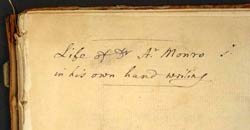 Life of Dr Ar. Monro Sr
in his own hand writing